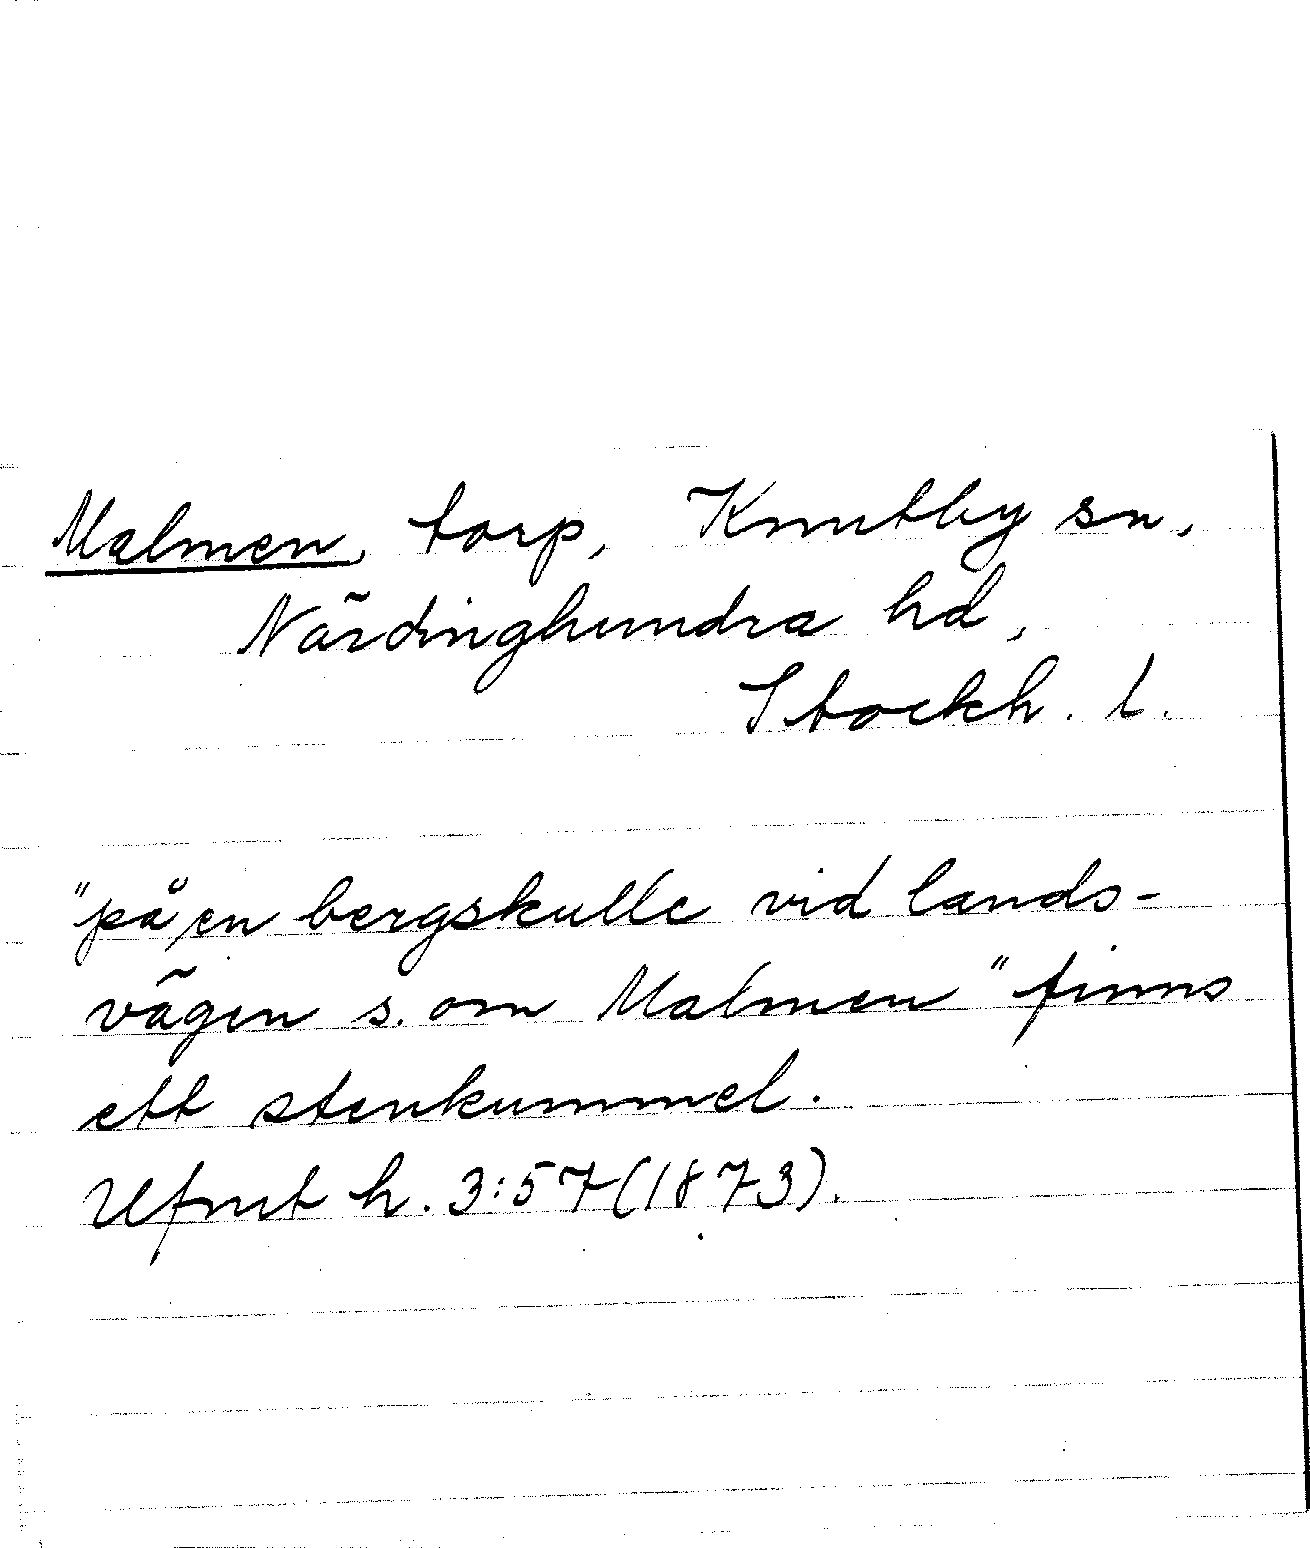 Malmen, torp, Knutby sn,
Närdinghundra hd,
Stockh. l.
"på en bergskulle vid lands-
vägen s. om Malmen" finns
ett stenkummel.
Ufmt h. 3:57 (1873).